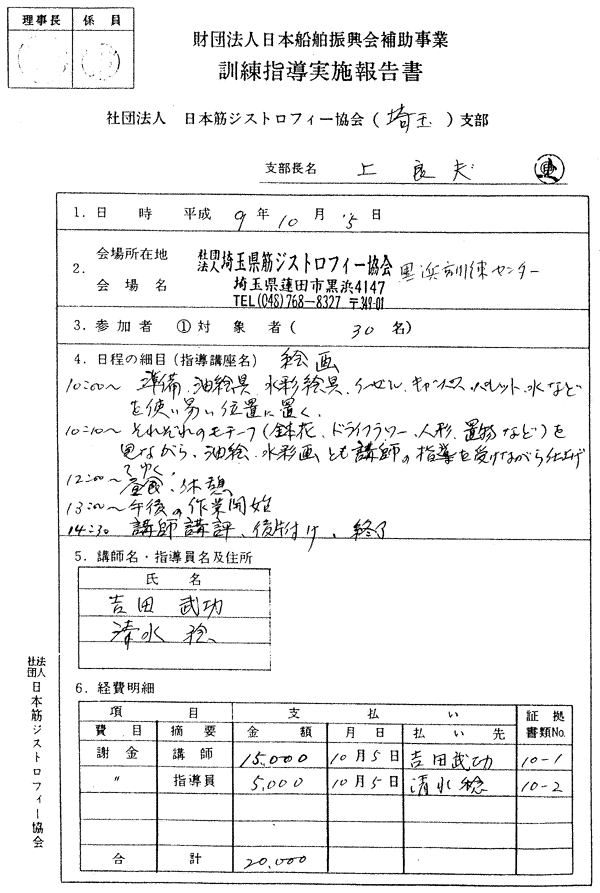 理事長 係員
財団法人日本船舶振興会補助事業
訓練指導実施報告書
社団法人 日本筋ジストロフィー協会(埼玉)支部
支部長名 上 良夫
1. 日 時 平成 9年10月5日
2. 会場所在地
会場名
社団法人埼玉県筋ジストロフィー協会 黒浜訓練センター
埼玉県蓮田市黒浜4147
TEL(048)768-8327 〒349-01
3. 参加者 ①対象者( 30名)
4. 日程の細目(指導講座名) 絵画
10:00~ 準備、油絵具、水彩絵具、イーゼル、キャンバス、パレット、水など
を使い易い位置に置く。
10:10~ それぞれのモチーフ(鉢花、ドライフラワー、人形、置物など)を
見ながら、油絵、水彩画とも講師の指導を受けながら仕上げ
てゆく
12:00~ 昼食、休憩
13:00~ 午後の作業開始
14:30 講師講評、後片付け、終了
5. 講師名・指導員名及住所
氏名
吉田 武功
清水 稔
6. 経費明細
項目 支払い 証拠書類No.
費目 摘要 金額 月日 払い先
謝金 講師 15,000 10月5日 吉田武功 10-1
〃 指導員 5,000 10月5日 清水稔 10-2
合計 20,000
社団法人日本筋ジストロフィー協会